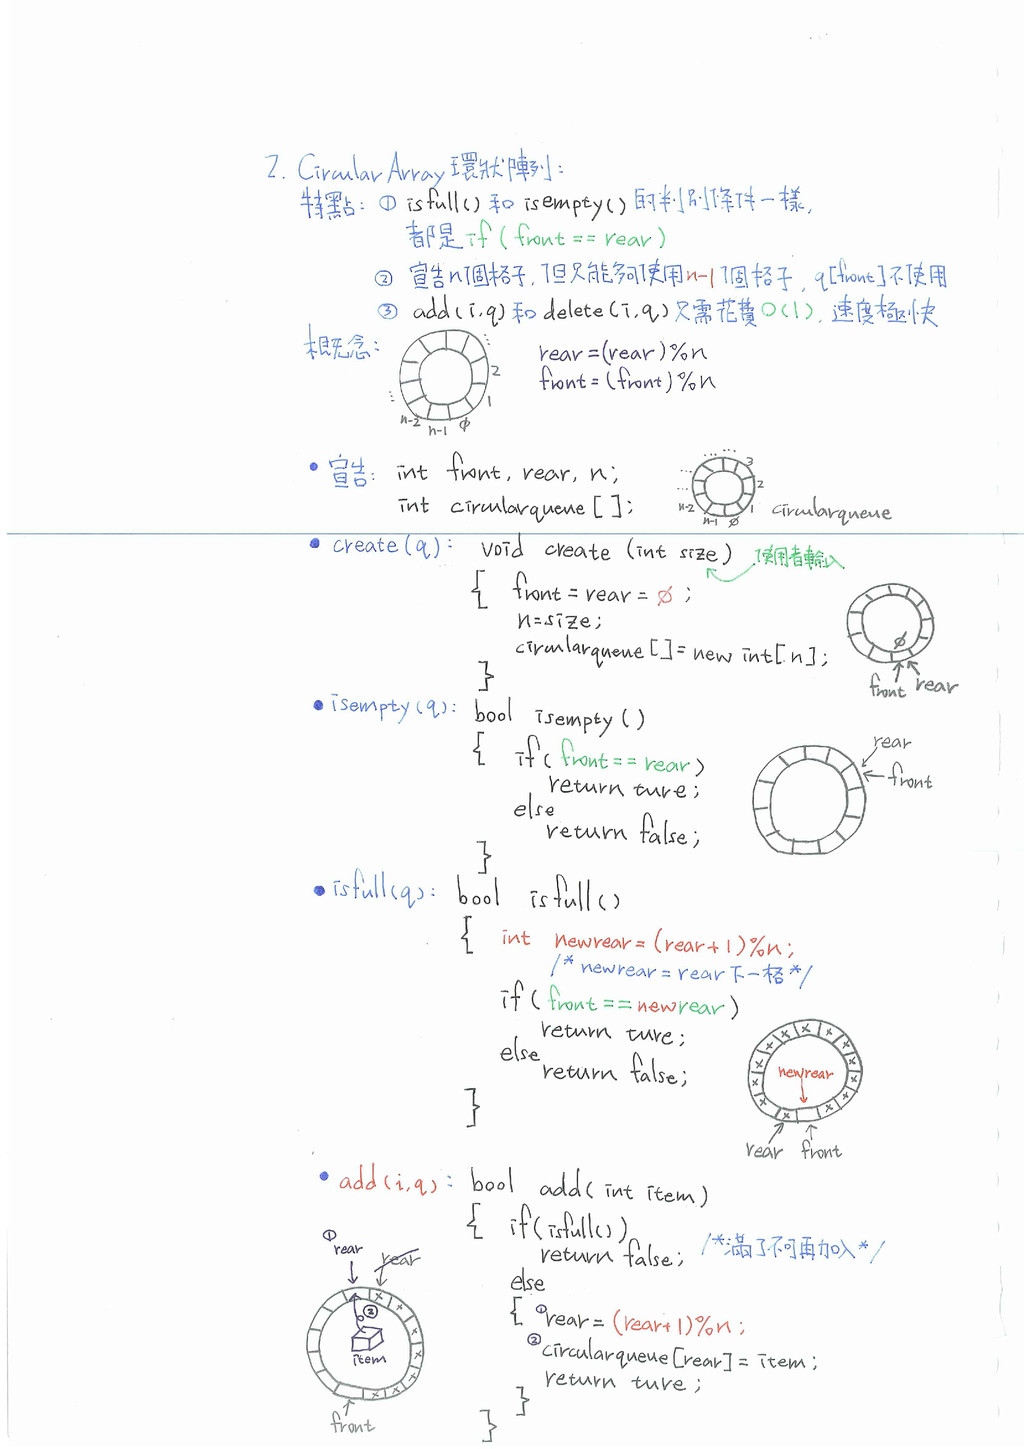 2. Circular Array 環狀陣列:
特點: ① isfull() 和 isempty() 的判別條件一樣,
都是 if (front == rear)
② 宣告n個格子,但只能夠使用n-1個格子, q[front]不使用
③ add(i,q) 和 delete(i,q) 只需花費O(1), 速度極快
概念:
rear=(rear)%n
front=(front)%n
2
1
φ
n-1
n-2
• 宣告: int front, rear, n;
int circularqueue[];
3
2
1
φ
n-1
n-2
circularqueue
• create(q): void create (int size) 使用者輸入
{ front = rear = φ;
n=size;
circularqueue[]=new int[n];
}
φ
front rear
• isempty(q): bool isempty()
{ if( front==rear)
return ture;
else
return false;
}
rear
front
• isfull(q): bool isfull()
{ int newrear=(rear+1)%n;
/* newrear=rear下一格 */
if( front==newrear)
return ture;
else
return false;
}
newrear
rear front
• add(i,q): bool add( int item)
{ if(isfull())
return false; /*滿了不可再加入*/
else
{ ①rear=(rear+1)%n;
②circularqueue[rear]=item;
return ture;
}
}
①
rear rear
②
item
front